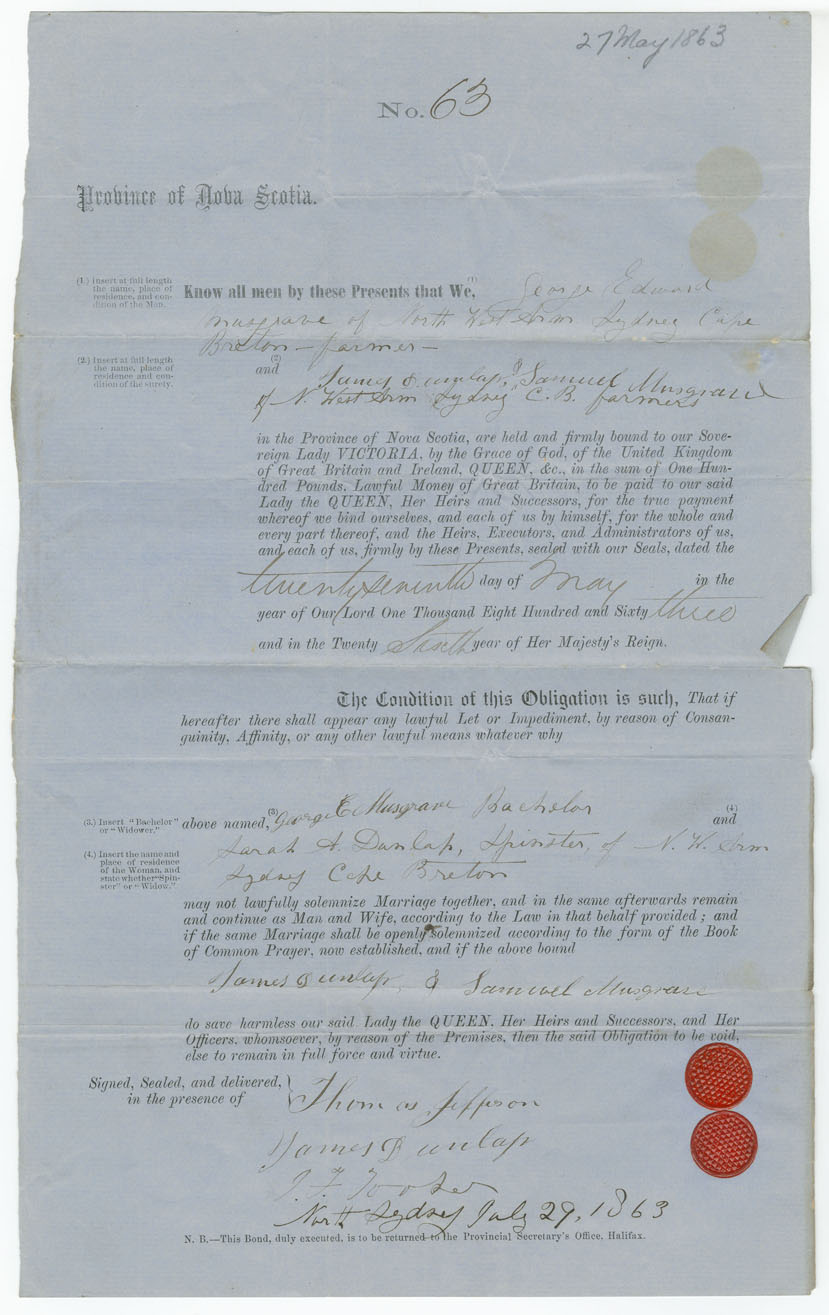 27 May 1863
No. 63
Province of Nova Scotia.
(1.) Insert at full length
the name, place of
residence, and con-
dition of the Man.
Know all men by these Presents that We, (1) George Edward
Musgrave of North West Arm Sydney Cape
Breton - farmer -
(2.) Insert at full length
the name, place of
residence and con-
dition of the surety.
(2)
and James Dunlap, & Samuel Musgrave
of N. West Arm Sydney C. B. farmers
in the Province of Nova Scotia, are held and firmly bound to our Sove-
reign Lady VICTORIA, by the Grace of God, of the United Kingdom
of Great Britain and Ireland, QUEEN, &c., in the sum of One Hun-
dred Pounds, Lawful Money of Great Britain, to be paid to our said
Lady the QUEEN, Her Heirs and Successors, for the true payment
whereof we bind ourselves, and each of us by himself, for the whole and
every part thereof, and the Heirs, Executors, and Administrators of us,
and each of us, firmly by these Presents, sealed with our Seals, dated the
twenty seventh day of May in the
year of Our Lord One Thousand Eight Hundred and Sixty three
and in the Twenty Sixth year of Her Majesty's Reign.
The Condition of this Obligation is such, That if
hereafter there shall appear any lawful Let or Impediment, by reason of Consan-
guinity, Affinity, or any other lawful means whatever why
(3.) Insert "Bachelor"
or "Widower."
above named, (3) George E Musgrave Bachelor (4) and
(4.) Insert the name and
place of residence
of the Woman, and
state whether "Spin-
ster" or "Widow."
Sarah A. Dunlap, Spinster, of N. W. Arm
Sydney Cape Breton
may not lawfully solemnize Marriage together, and in the same afterwards remain
and continue as Man and Wife, according to the Law in that behalf provided; and
if the same Marriage shall be openly solemnized according to the form of the Book
of Common Prayer, now established, and if the above bound
James Dunlap, & Samuel Musgrave
do save harmless our said Lady the QUEEN, Her Heirs and Successors, and Her
Officers, whomsoever, by reason of the Premises, then the said Obligation to be void,
else to remain in full force and virtue.
Signed, Sealed, and delivered,
in the presence of
Thomas Jefferson
James Dunlap
North Sydney July 29, 1863
N. B.—This Bond, duly executed, is to be returned to the Provincial Secretary's Office, Halifax.